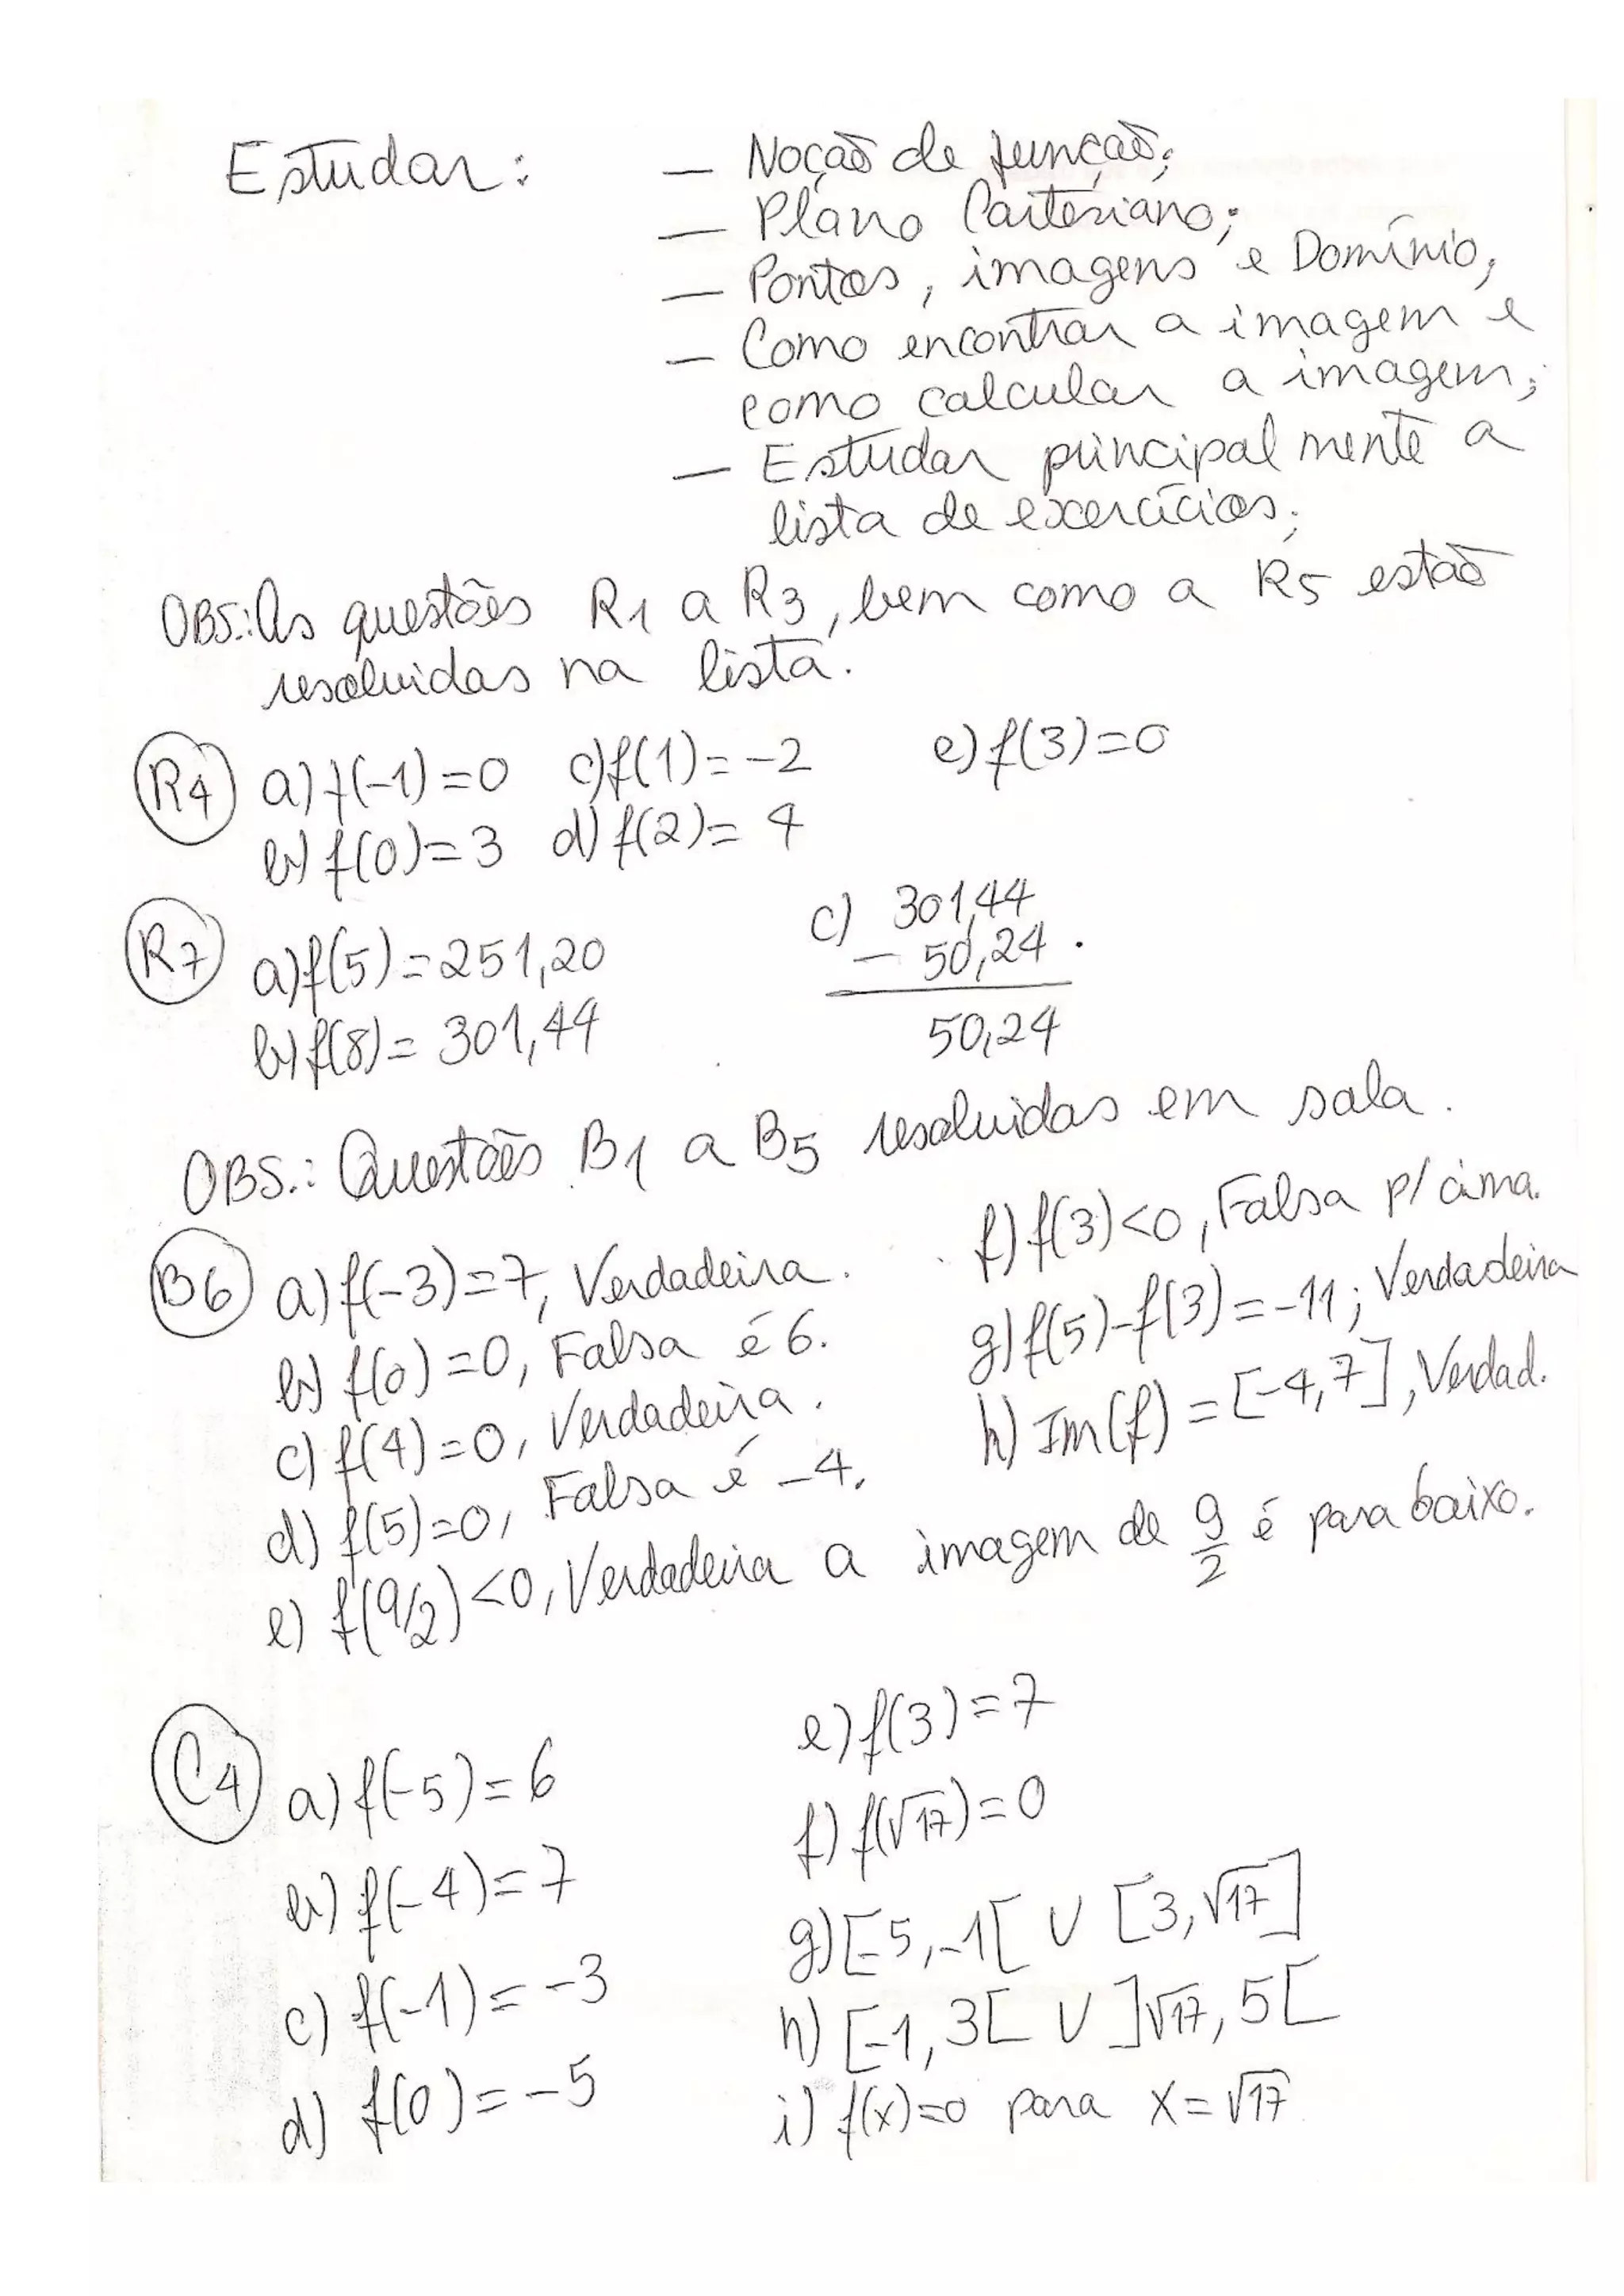 Estudar: — Noção de função;
— Plano Cartesiano;
— Pontos, imagens e Domínio;
— Como encontrar a imagem e
como calcular a imagem;
— Estudar principalmente a
lista de exercícios;
OBS.: As questões R1 a R3, bem como a R5 estão
resolvidas na lista.
R4 a) f(-1)=0 c) f(1)=-2 e) f(3)=0
b) f(0)=3 d) f(2)=4
R7 a) f(5)=251,20
b) f(8)=301,44
c) 301,44
- 50,24
50,24
OBS.: Questões B1 a B5 resolvidas em sala.
B6 a) f(-3)=7, Verdadeira.
b) f(0)=0, Falsa é 6.
c) f(4)=0, Verdadeira.
d) f(5)=0, Falsa é -4.
e) f(9/2)<0, Verdadeira a imagem de 9/2 é para baixo.
f) f(3)<0, Falsa p/ cima.
g) f(5)-f(3)=-11; Verdadeira
h) Im(f)=[-4,7], Verdad.
C4 a) f(-5)=6
b) f(-4)=7
c) f(-1)=-3
d) f(0)=-5
e) f(3)=7
f) f(√17)=0
g) [-5,-1[ ∪ [3,√17]
h) [-1,3[ ∪ ]√17,5[
i) f(x)=0 para x=√17